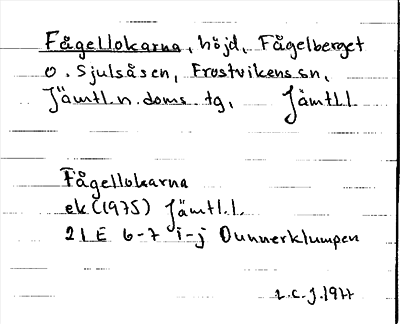 Fågellokarna, höjd, Fågelberget
o. Sjulsåsen, Frostvikens sn,
Jämtl. n. doms. tg, Jämtl.l.
Fågellokarna
ek (1975) Jämtl.l.
21E 6-7 i-j Dunnerklumpen
1977